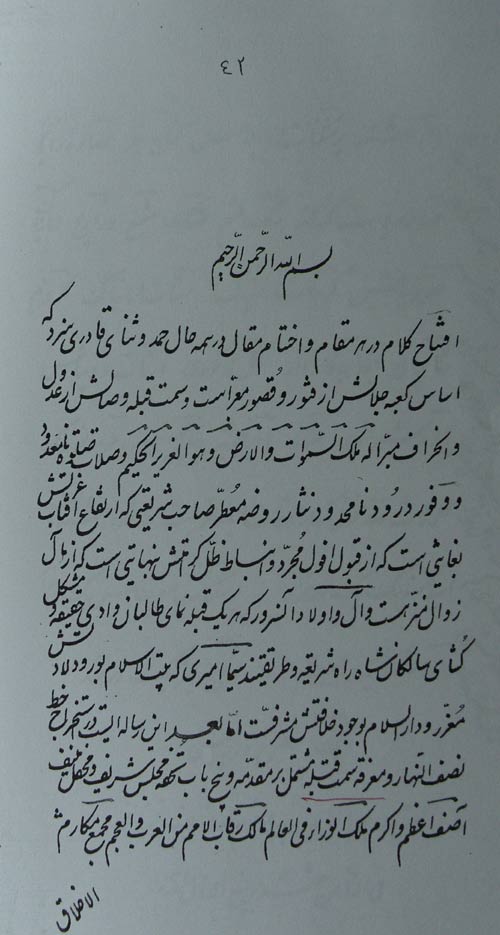 ٤٢
بسم الله الرّحمن الرّحیم
افتتاح کلام در هر مقام و اختتام مقال در همه حال حمد و ثنای قادری سزد که
اساس کعبه جلالش از فتور و قصور معرّاست و سمت قبله وصالش از عدول
و انحراف مبرّا له ملک السّموات والارض وهو العزیز الحکیم و صلات نامعدود
و وفور درود نامحدود نثار روضه معطّر صاحب شریعتی که ارتفاع افتاب عزتش
بغایتی است که از قبول افول مجرّد و انبساط ظلّ کرامتش بنهایتی است که از مآل
زوال منزّهست و آل و اولاد آنسرور که هر یک قبله نمای طالبان وادی حقیقة و مشکل
کشای سالکان شاه راه شریعة و طریقتند سیّما امیری که بیت الاسلام بورود ولادتش
معزّز و دار السلام بوجود خلافتش مشرّفست امّا بعد این رساله ایست در استخراج خط
نصف النّهار و معرفة سمت قبله مشتمل بر مقدّمه و پنج باب تحفه مجلس شریف و محفل منیف
آصف اعظم و اکرم ملک الوزراء فی العالم مالک رقاب الامم من العرب والعجم مجمع مکارم
الاخلاق